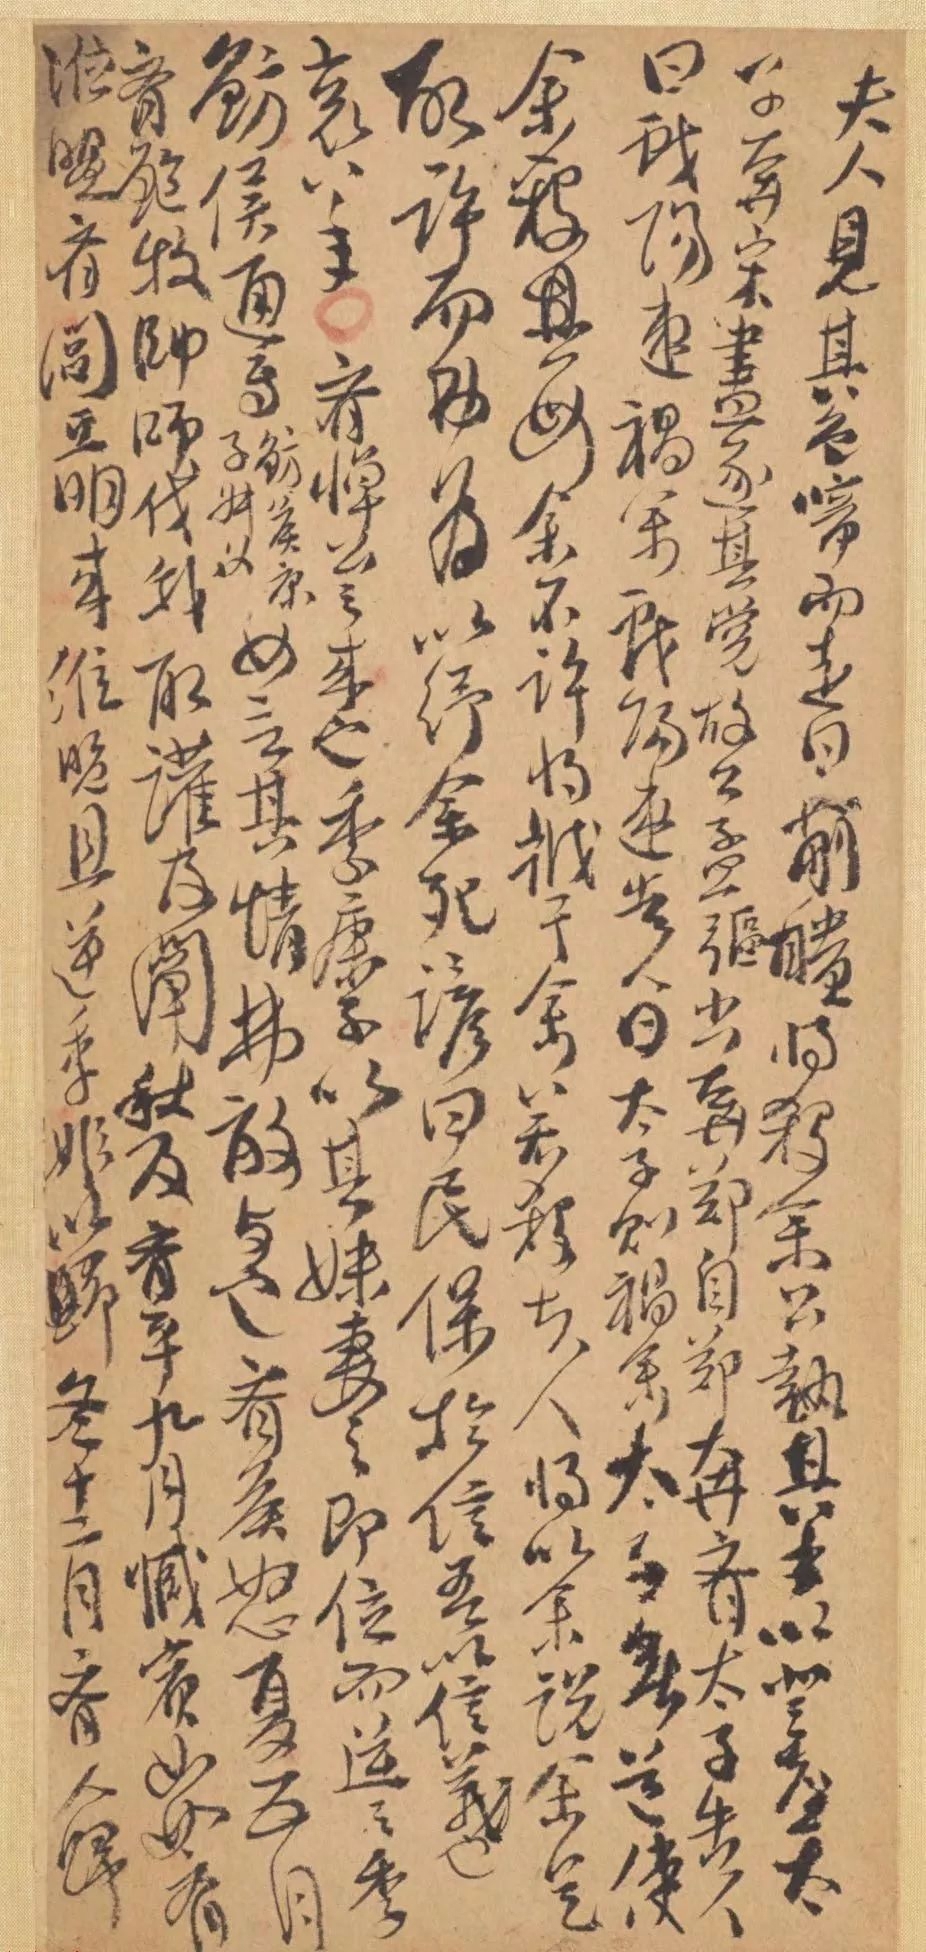 夫人見其色啼而走曰蒯聵將殺余公執其手以登臺太
子奔宋盡逐其党故公孟彄出奔鄭自鄭奔齊太子告人
曰戲陽速禍余戲陽速告人曰太子則禍余太子無道使
余殺其母余不許將戕于余若殺夫人將以余說余是
故許而弗為以紓余死諺曰民保於信吾以信義也
哀八年○齊悼公之來也季康子以其妹妻之即位而逆之季
魴侯通焉魴侯康子叔父女言其情弗敢與也齊侯怒夏五月
齊鮑牧帥師伐我取讙及闡秋及齊平九月臧賓如如齊
涖盟齊閭丘明來涖盟且逆季姬以歸冬十二月齊人歸